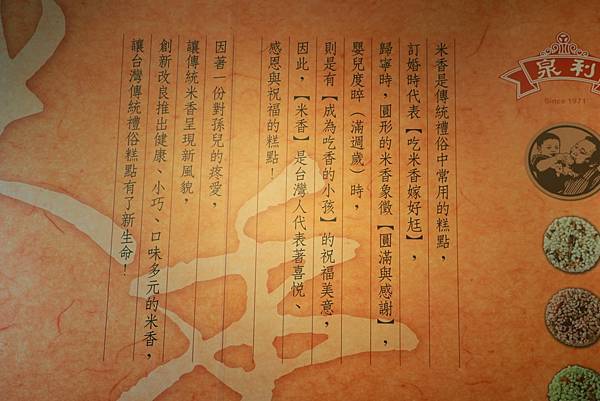 泉利
Since 1971
米香是傳統禮俗中常用的糕點，
訂婚時代表【吃米香嫁好尪】，
歸寧時，圓形的米香象徵【圓滿與感謝】，
嬰兒度晬（滿週歲）時，
則是有【成為吃香的小孩】的祝福美意，
因此，【米香】是台灣人代表著喜悅、
感恩與祝福的糕點！
因著一份對孫兒的疼愛，
讓傳統米香呈現新風貌，
創新改良推出健康、小巧、口味多元的米香，
讓台灣傳統禮俗糕點有了新生命！